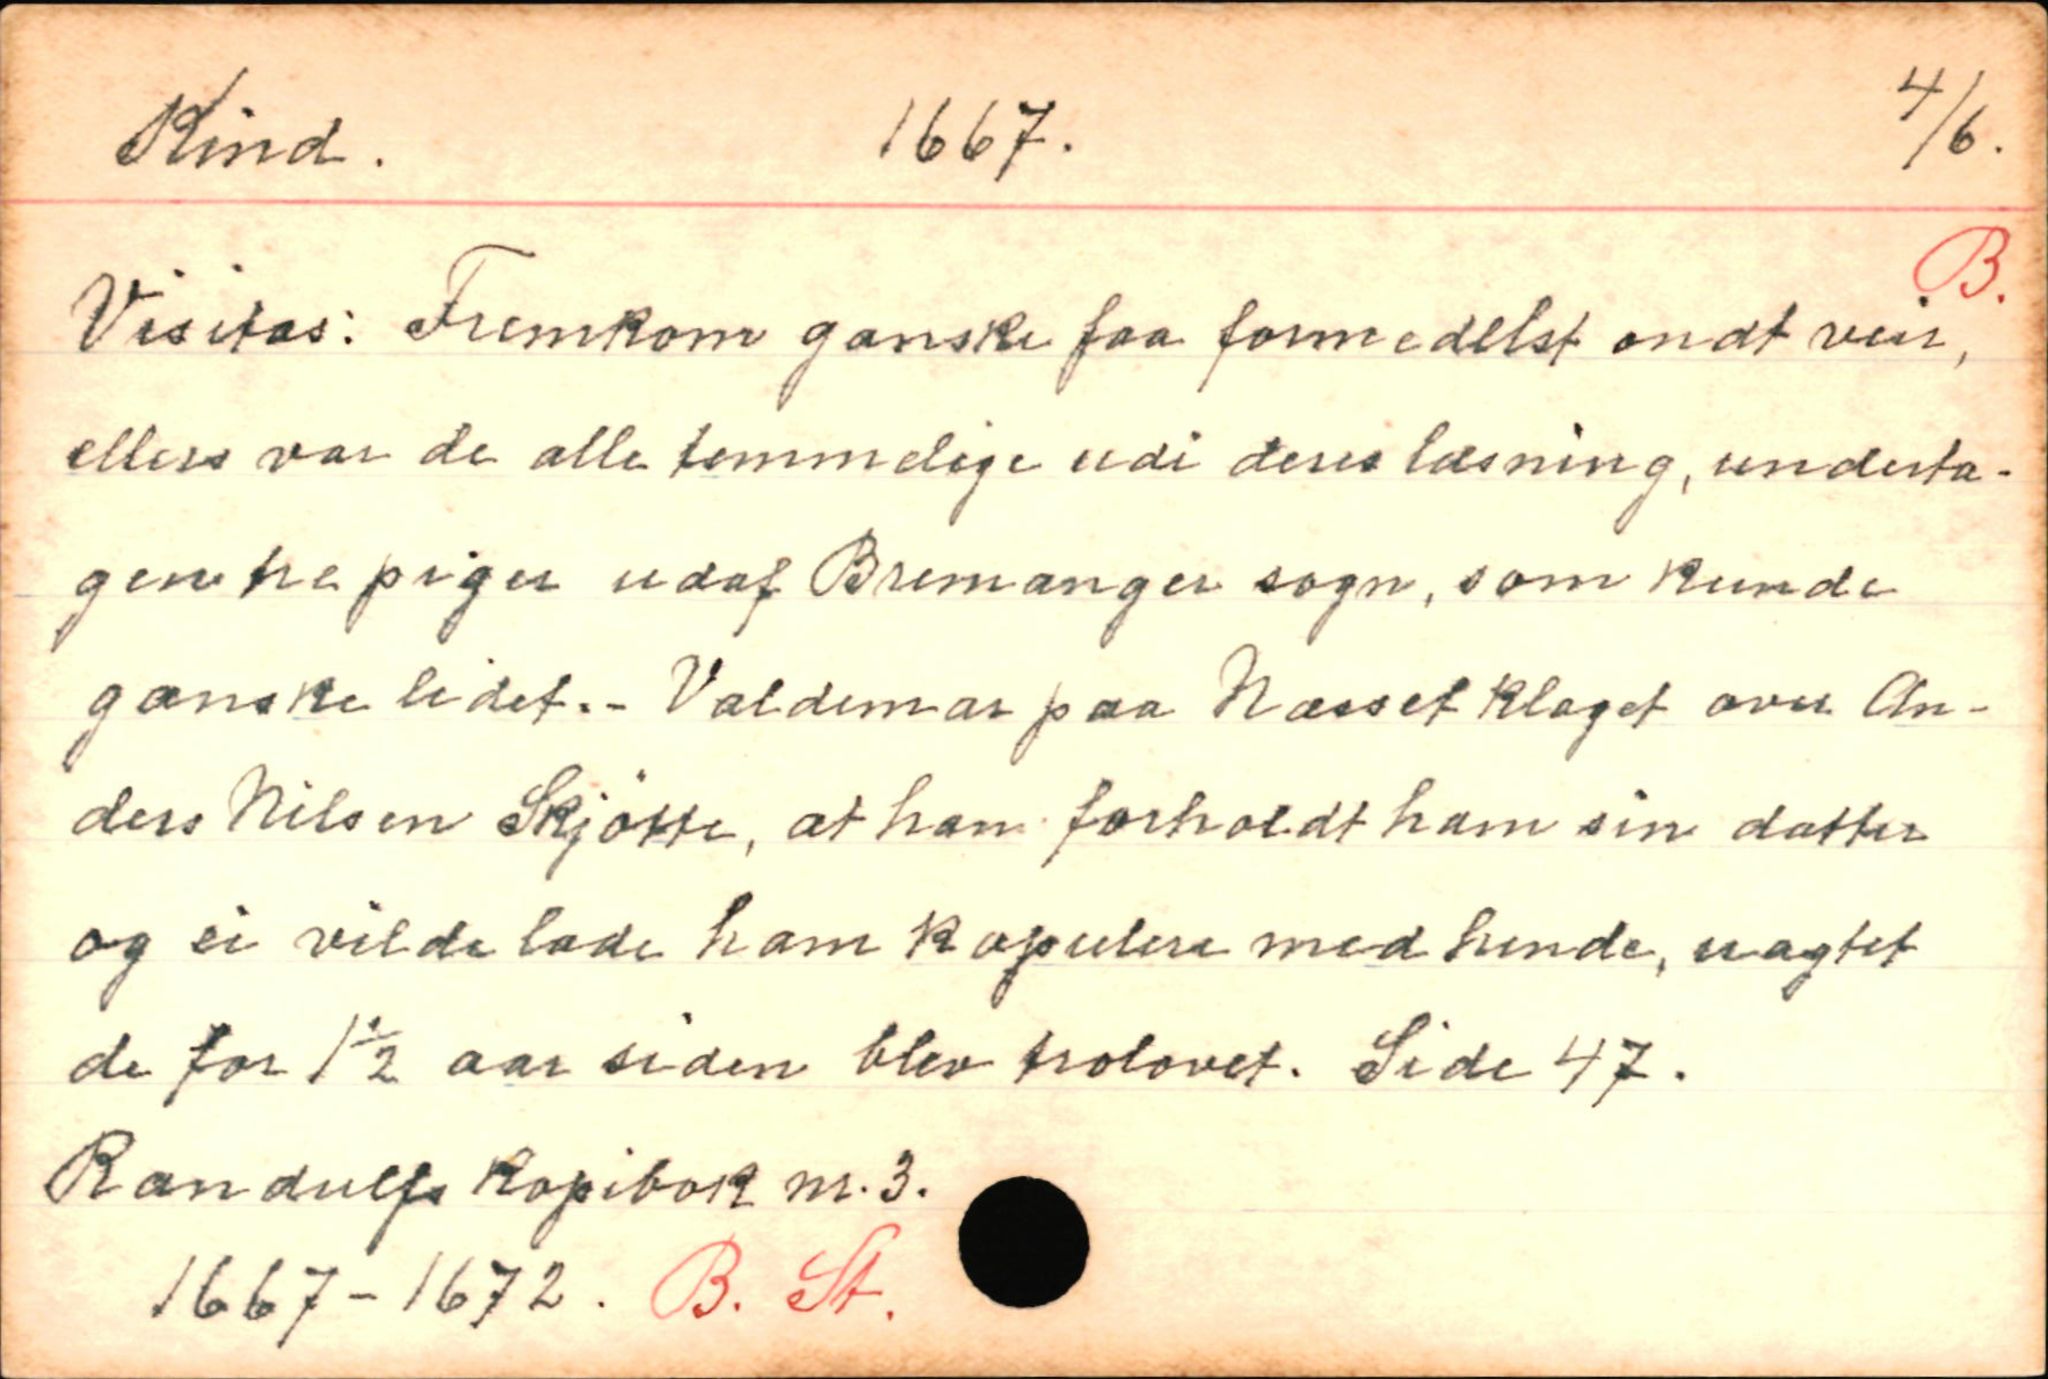 Kind. 1667. 4/6.
B.
Visitas: Fremkom ganske faa formedelst ondt veir,
ellers var de alle temmelige udi deres læsning, underta-
gen tre piger udaf Bremanger sogn, som kunde
ganske lidet. - Valdemar paa Næsset klaget over An-
ders Nilsen Skjötte, at han forholdt ham sin datter
og ei vilde lade ham kopulere med hende, uagtet
de for 1½ aar siden blev trolovet. Side 47.
Randulfs Kopibok nr. 3.
1667-1672. B. St.